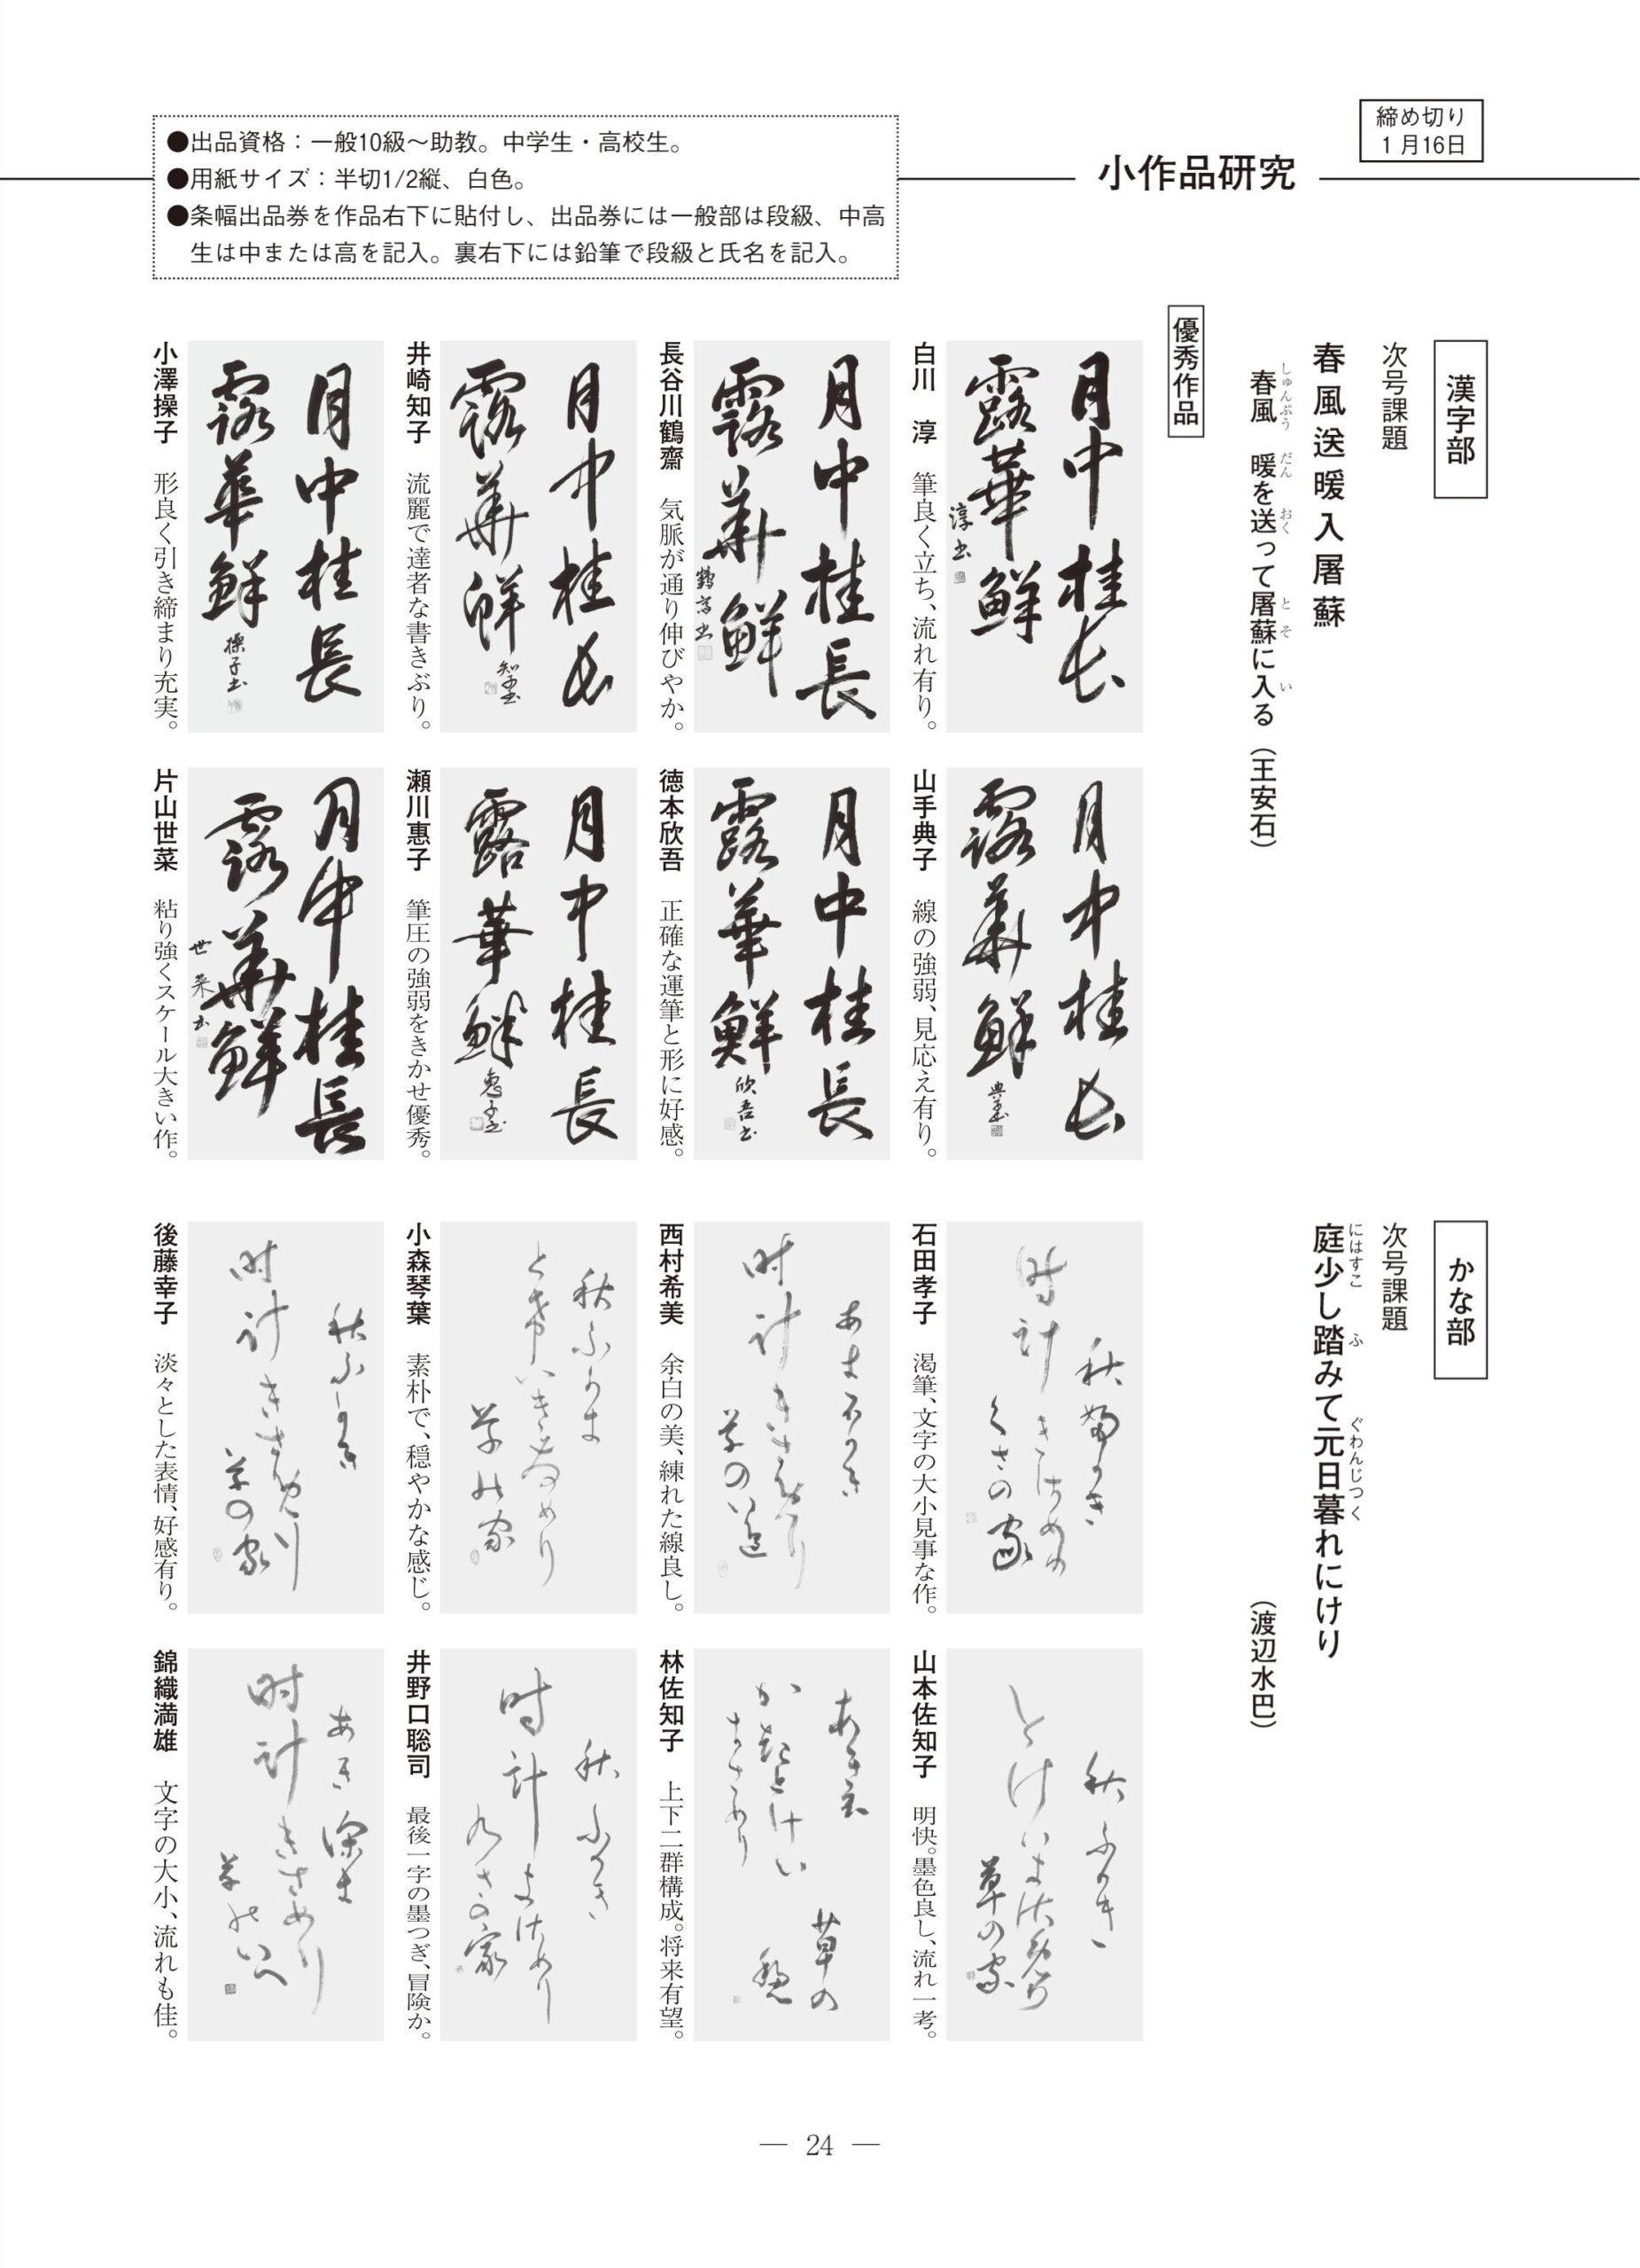 締め切り
1月16日
小作品研究
●出品資格：一般10級～助教。中学生・高校生。
●用紙サイズ：半切1/2縦、白色。
●条幅出品券を作品右下に貼付し、出品券には一般部は段級、中高
生は中または高を記入。裏右下には鉛筆で段級と氏名を記入。
漢字部
次号課題
春風送暖入屠蘇
春風　暖を送って屠蘇に入る（王安石）
しゅんぷう　だん　おく　とそ　い
優秀作品
月中桂長
露華鮮
淳書
白川　淳　筆良く立ち、流れ有り。
月中桂長
露華鮮
鶴斎書
長谷川鶴齋　気脈が通り伸びやか。
月中桂長
露華鮮
井崎知子　流麗で達者な書きぶり。
月中桂長
露華鮮
操子書
小澤操子　形良く引き締まり充実。
月中桂長
露華鮮
山手典子　線の強弱、見応え有り。
月中桂長
露華鮮
欣吾書
徳本欣吾　正確な運筆と形に好感。
月中桂長
露華鮮
瀬川惠子　筆圧の強弱をきかせ優秀。
月中桂長
露華鮮
世菜書
片山世菜　粘り強くスケール大きい作。
かな部
次号課題
庭少し踏みて元日暮れにけり
にはすこ　ふ　ぐわんじつく
（渡辺水巴）
石田孝子　渇筆、文字の大小見事な作。
西村希美　余白の美、練れた線良し。
小森琴葉　素朴で、穏やかな感じ。
後藤幸子　淡々とした表情、好感有り。
山本佐知子　明快。墨色良し、流れ一考。
林佐知子　上下二群構成。将来有望。
井野口聡司　最後一字の墨つぎ、冒険か。
錦織満雄　文字の大小、流れも佳。
― 24 ―